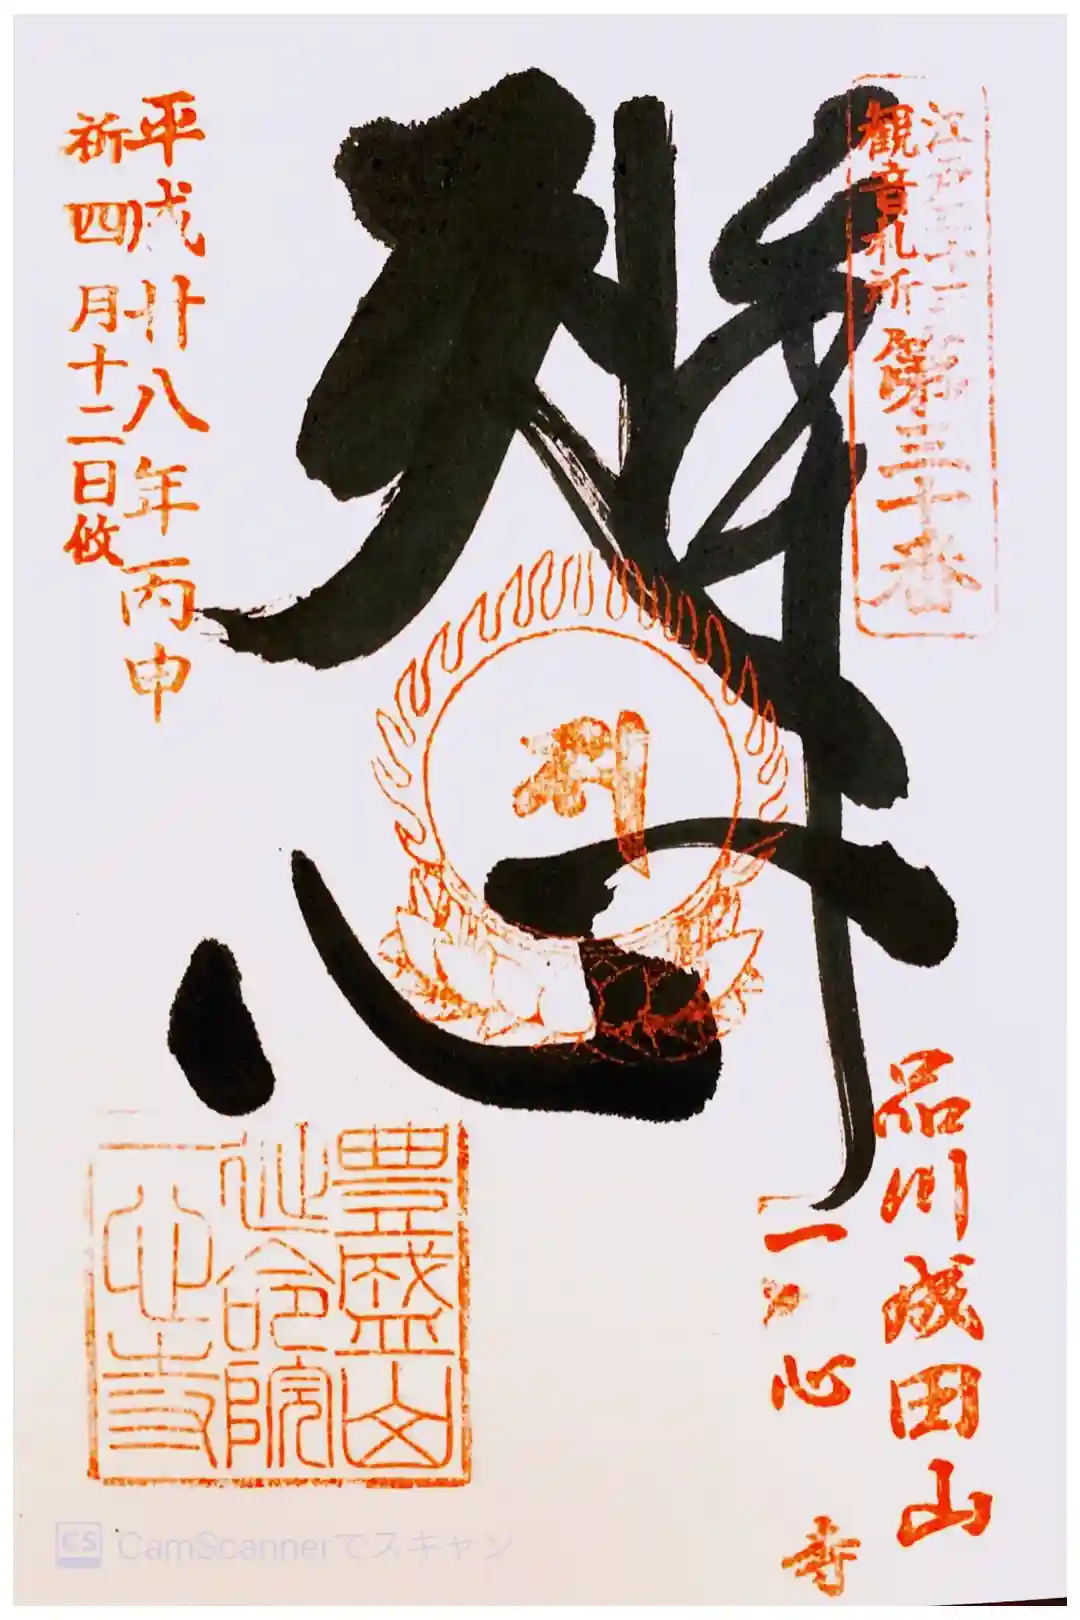 江戸三十三
観音札所
第三十番
品川成田山
一心寺
平成廿八年丙申
祈四月十二日攸
豊盛山
延命院
一心寺
CS CamScannerでスキャン